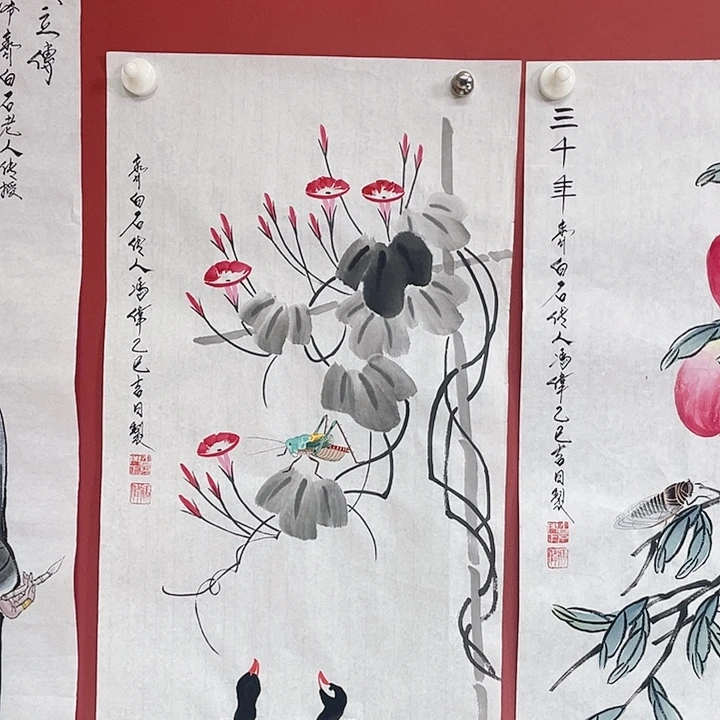 立傳
齊白石老人传授
齊白石传人馮偉乙巳吉日製
三千年
齊白石传人馮偉乙巳吉日製